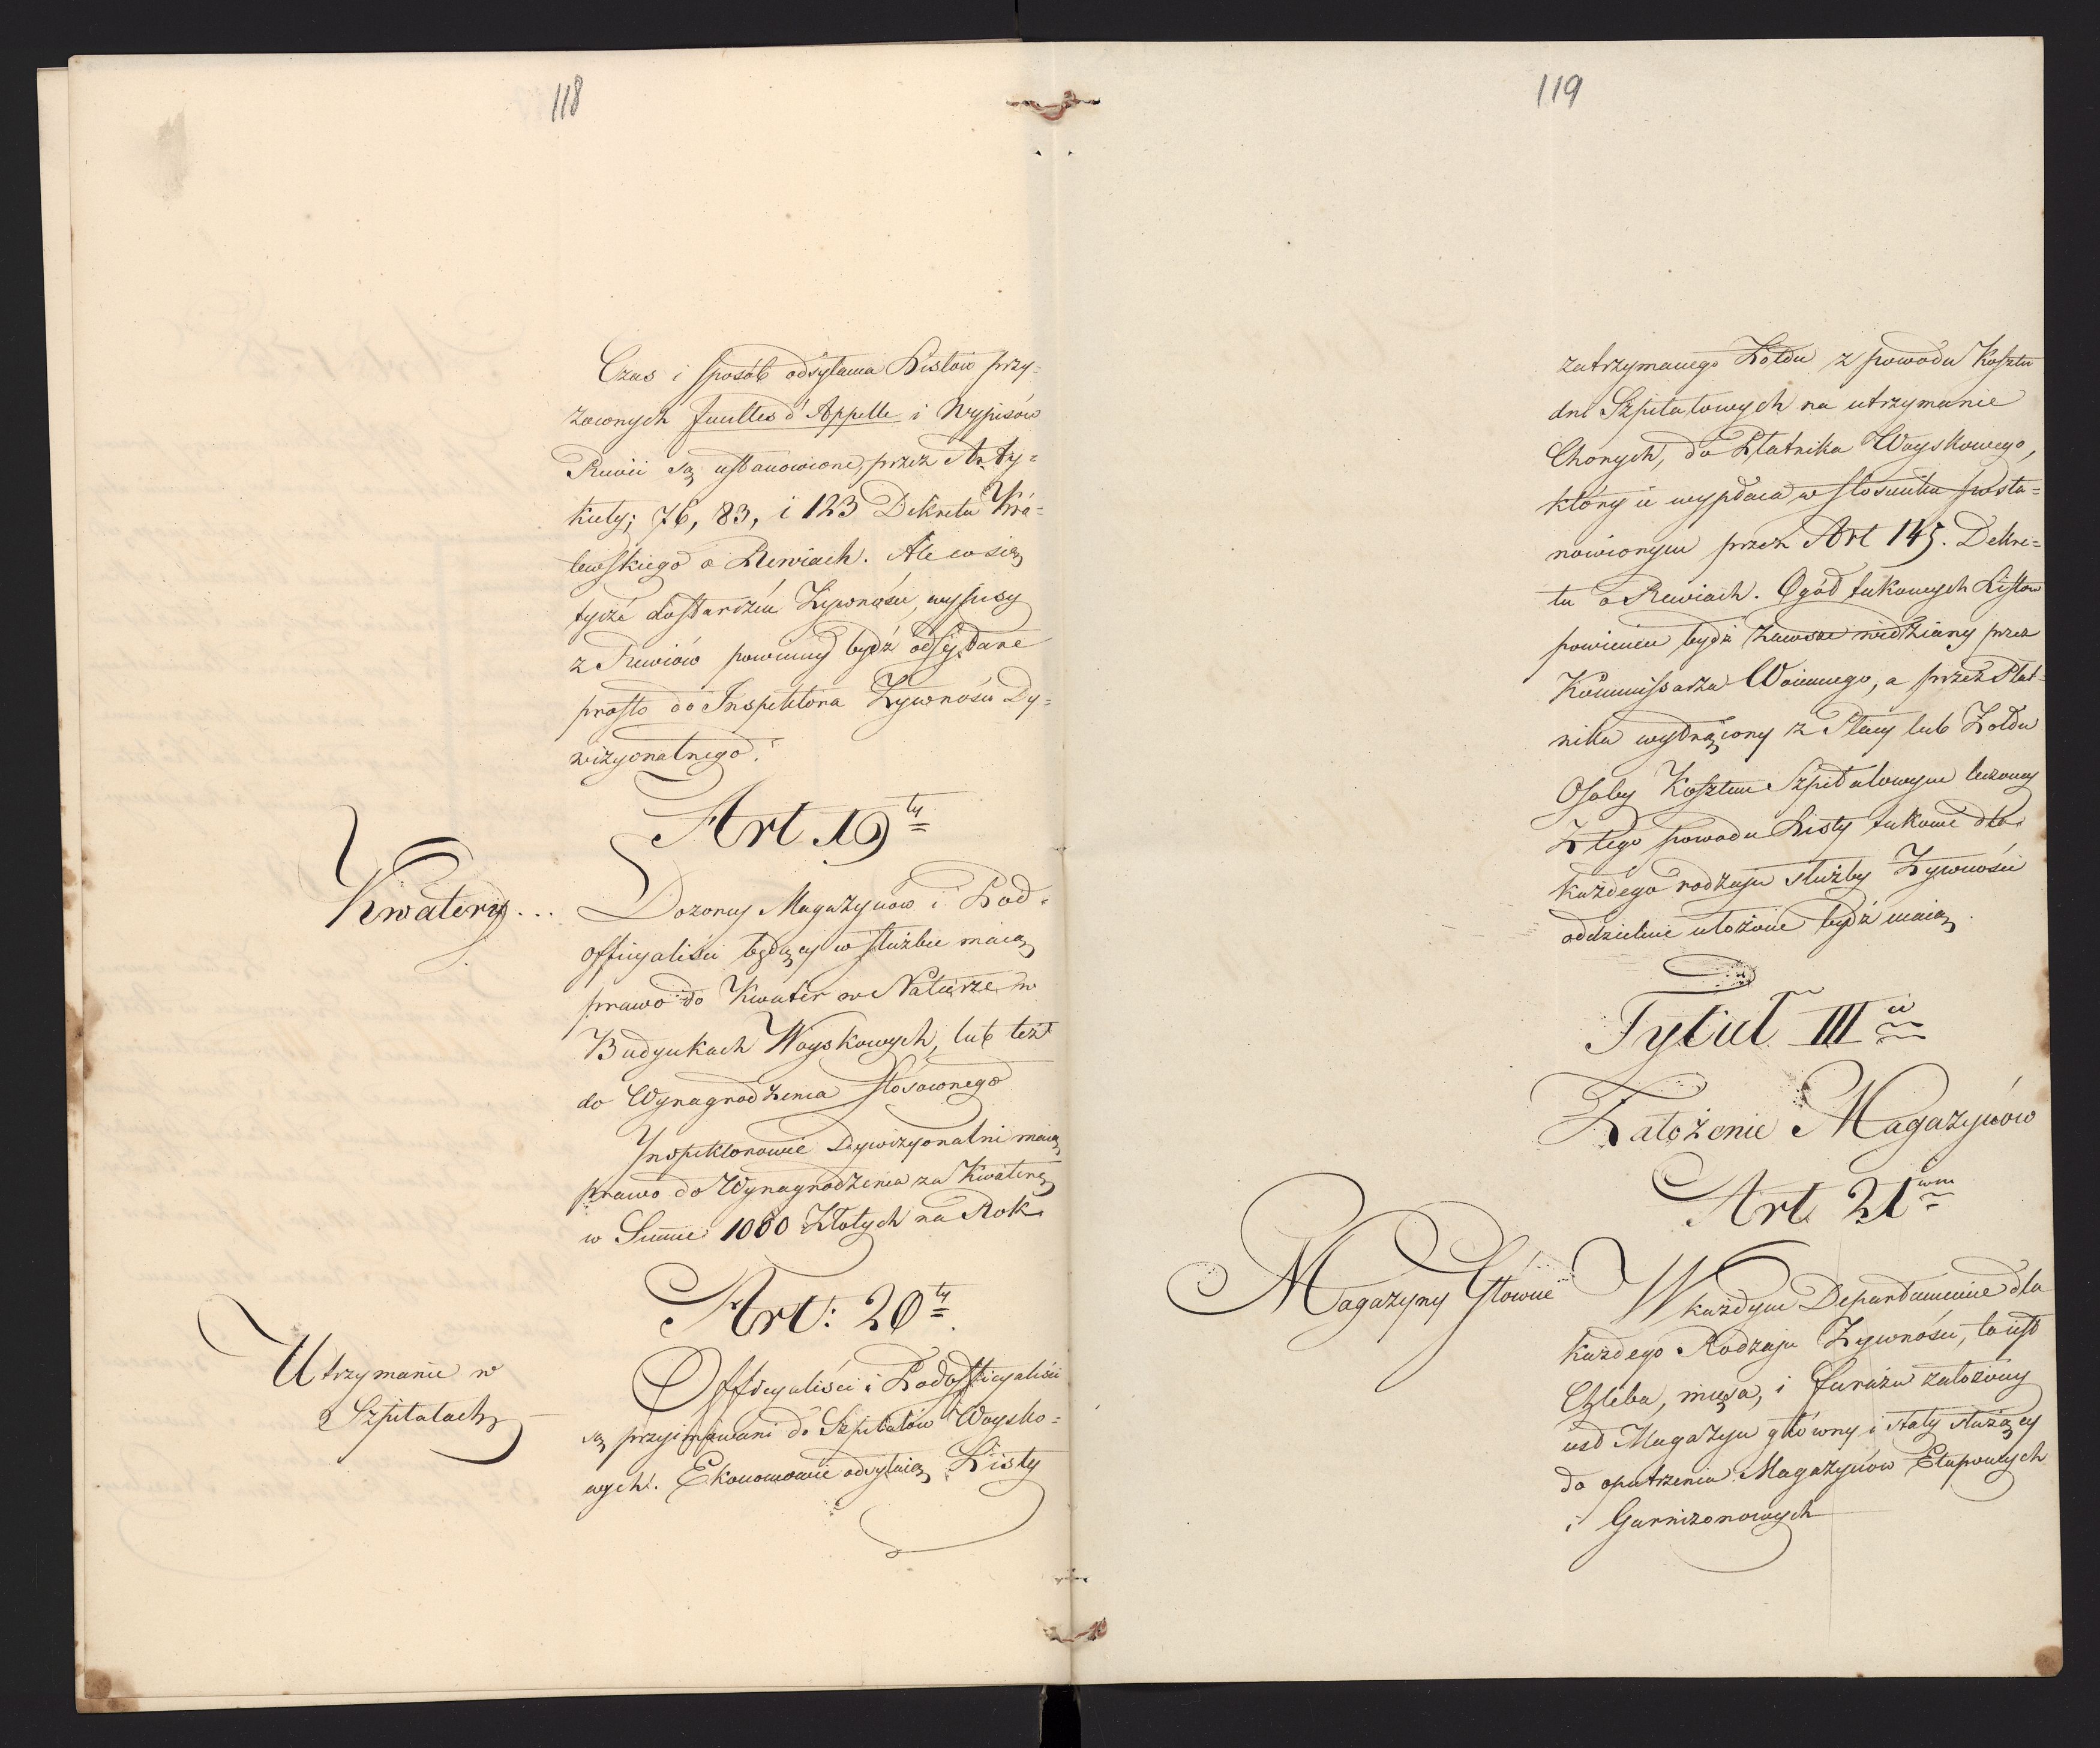 118
Czas i sposób odsyłania Listów przy-
zwonych faultes d'Appelle i Wypisów
Rewii są ustanowione przez Arty-
kuły; 76, 83, i 123 Dekretu Kró-
lewskiego o Rewiach. Ale co się
tycze dostarczeń Żywności, wypisy
z Rewiów powinny bydź odsyłane
prosto do Inspektora Żywności Dy-
wizyonalnego.
Art 19ty
Kwatery...
Dozorcy Magazynów i Pod-
officyaliści będący w służbie maią
prawo do Kwater w Naturze w
Budynkach Woyskowych, lub też
do Wynagrodzenia stosownego
Inspektorowie Dywizyonalni maią
prawo do Wynagrodzenia za Kwaterę
w Summie 1000 Złotych na Rok
Art: 20ty
Utrzymanie w
Szpitalach
Officyaliści i Podofficyaliści
są przyimowani do Szpitalów Woysko-
wych. Ekonomowie odsyłaią Listy
119
zatrzymanego Żołdu z powodu Kosztu
dni Szpitalowych na utrzymanie
Chorych, do Płatnika Woyskowego,
który ie wypłaca w stosunku posta-
nowionym przez Art 145. Dekre-
tu o Rewiach. Ogół takowych Listów
powinien bydź zawsze widziany przez
Kommissarza Woiennego, a przez Płat-
nika wytrącony z Płacy lub Żołdu
Osoby Kosztem Szpitalowym leczoney
Z tego powodu Listy takowe dla
każdego rodzaju służby Żywności
oddzielnie ułożone bydź maią
Tytuł III ci
Założenie Magazynów
Art 21wszy
Magazyny Główne
W każdym Departamencie dla
każdego Rodzaju Żywności, to iest
Chleba, mięsa, i furażu założony
iest Magazyn główny i stały służący
do opatrzenia Magazynów Etapowych
i Garnizonowych